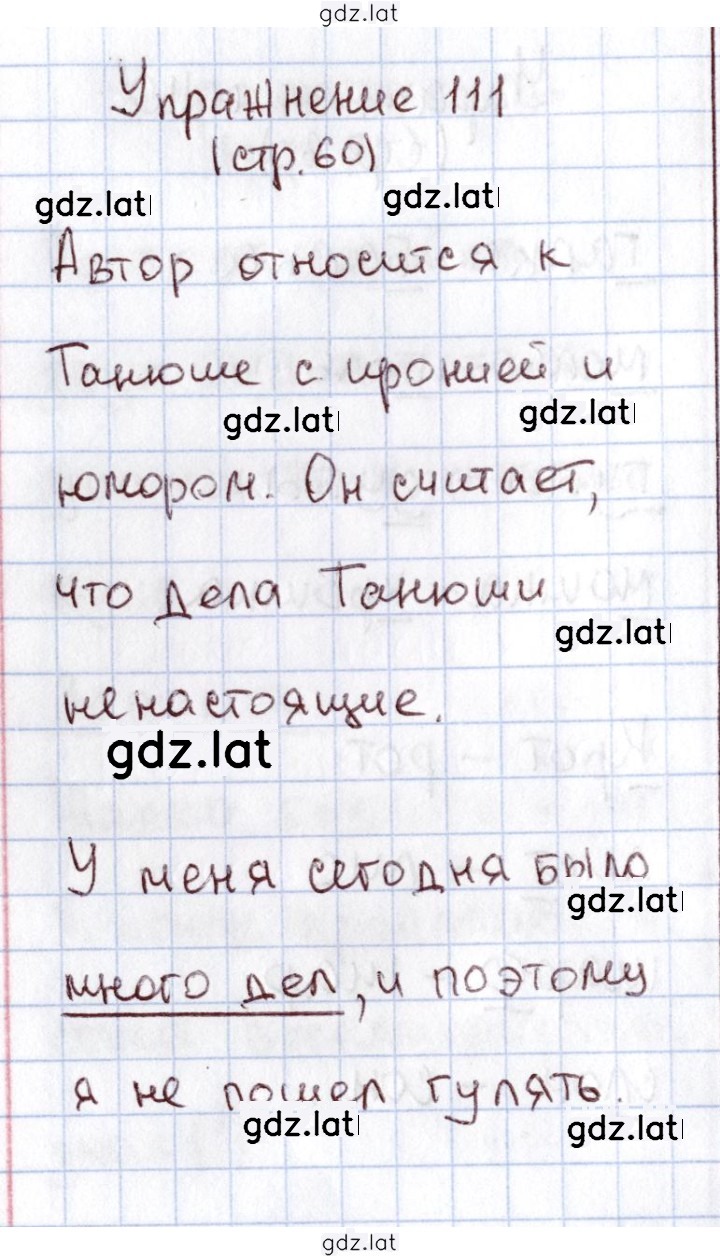 gdz.lat
Упражнение 111
(стр. 60)
gdz.lat gdz.lat
Автор относится к
Танюше с иронией и
gdz.lat gdz.lat
юмором. Он считает,
что дела Танюши
gdz.lat
ненастоящие.
gdz.lat
У меня сегодня было
gdz.lat
много дел, и поэтому
я не пошел гулять.
gdz.lat gdz.lat
gdz.lat